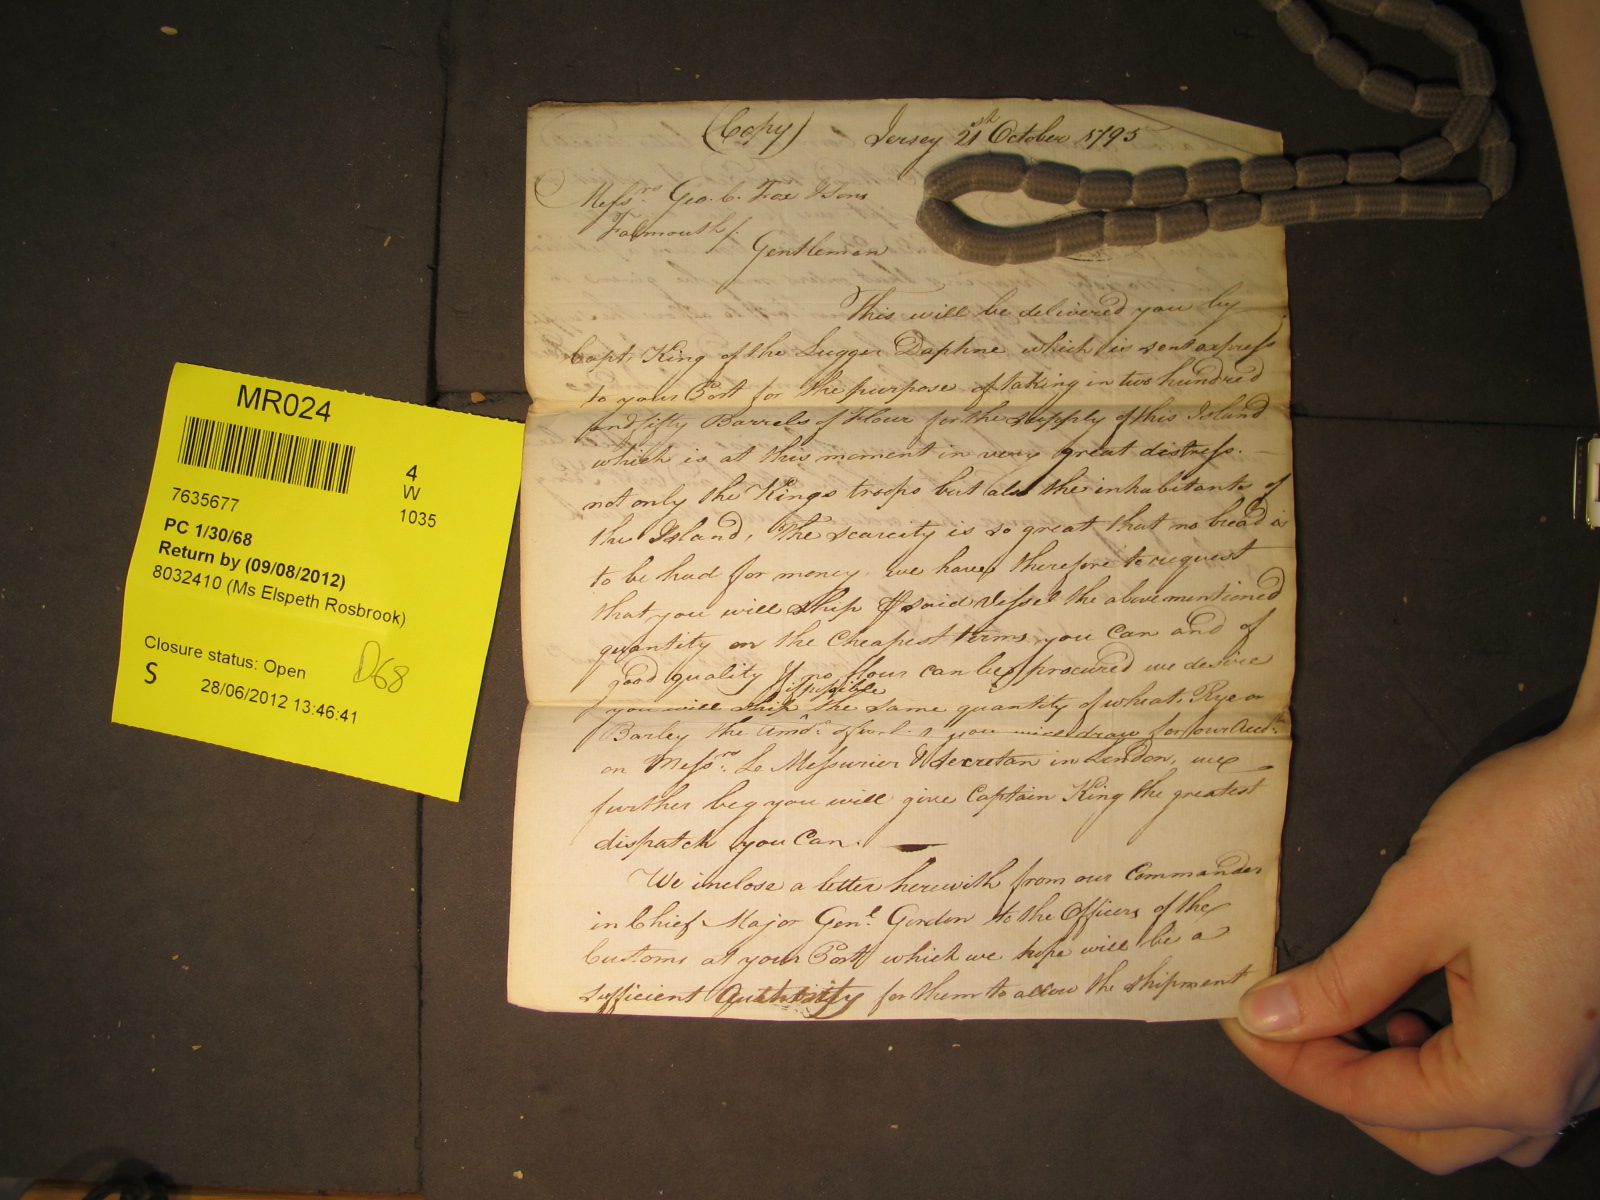 MR024
4
W
1035
7635677
PC 1/30/68
Return by (09/08/2012)
8032410 (Ms Elspeth Rosbrook)
Closure status: Open
D68
S
28/06/2012 13:46:41
(Copy) Jersey 21st October 1795
Messrs. Geo. C. Fox & Sons
Falmouth /.
Gentlemen
This will be delivered you by
Capt. King of the Lugger Daphne which is sent express
to your Port for the purpose of taking in two hundred
and fifty Barrels of Flour for the supply of this Island
which is at this moment in very great distress.
not only the Kings troops but also the inhabitants of
the Island, The scarcity is so great that no bread is
to be had for money. we have therefore to request
that you will ship P said Vessel the above mentioned
quantity on the cheapest terms you Can and of
good quality If no flour can be procured we desire
if possible
you will ship the same quantity of wheat, Rye or
Barley The Amot. of you will draw for our Acct.
on Messrs. Le Messurier & Secretan in London, we
further beg you will give Captain King the greatest
dispatch you Can.
We inclose a letter herewith from our Commander
in Chief Major Genl. Gordon to the Officers of the
Customs at your Port which we hope will be a
sufficient Authority for them to allow the shipment